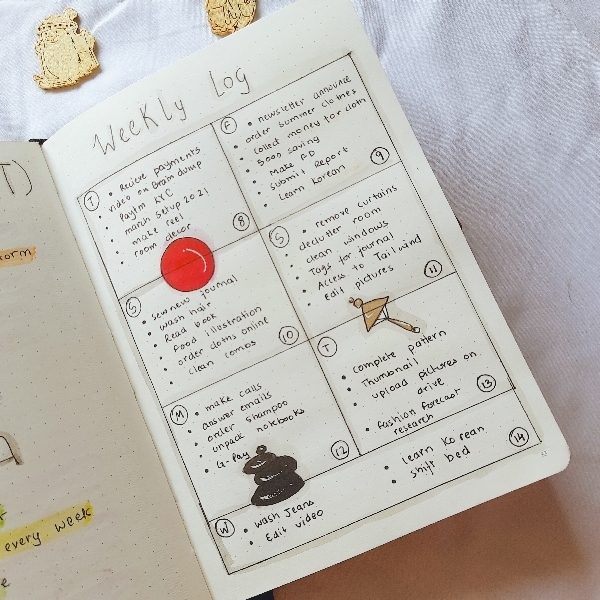 T)
orm
every week
e
WeeKly Log
T
Recieve payments
video on Brain dump
Paytm KYC
march setup 2021
make reel
room decor
8
F
newsletter announce
order summer clothes
collect money for cloth
5000 saving
Make FD
submit Report
Learn Korean
9
S
sew new journal
wash hair
Read book
Food illustration
order cloths online
clean combs
10
S
remove curtains
declutter room
clean windows
Tags for journal
Access to Tailwind
Edit pictures
11
M
make calls
answer emails
order shampoo
unpack notebooks
G-Pay
12
T
complete pattern
Thumbnail
upload pictures on
drive
fashion forecast
research
13
W
wash Jeans
Edit video
learn Korean
shift bed
14